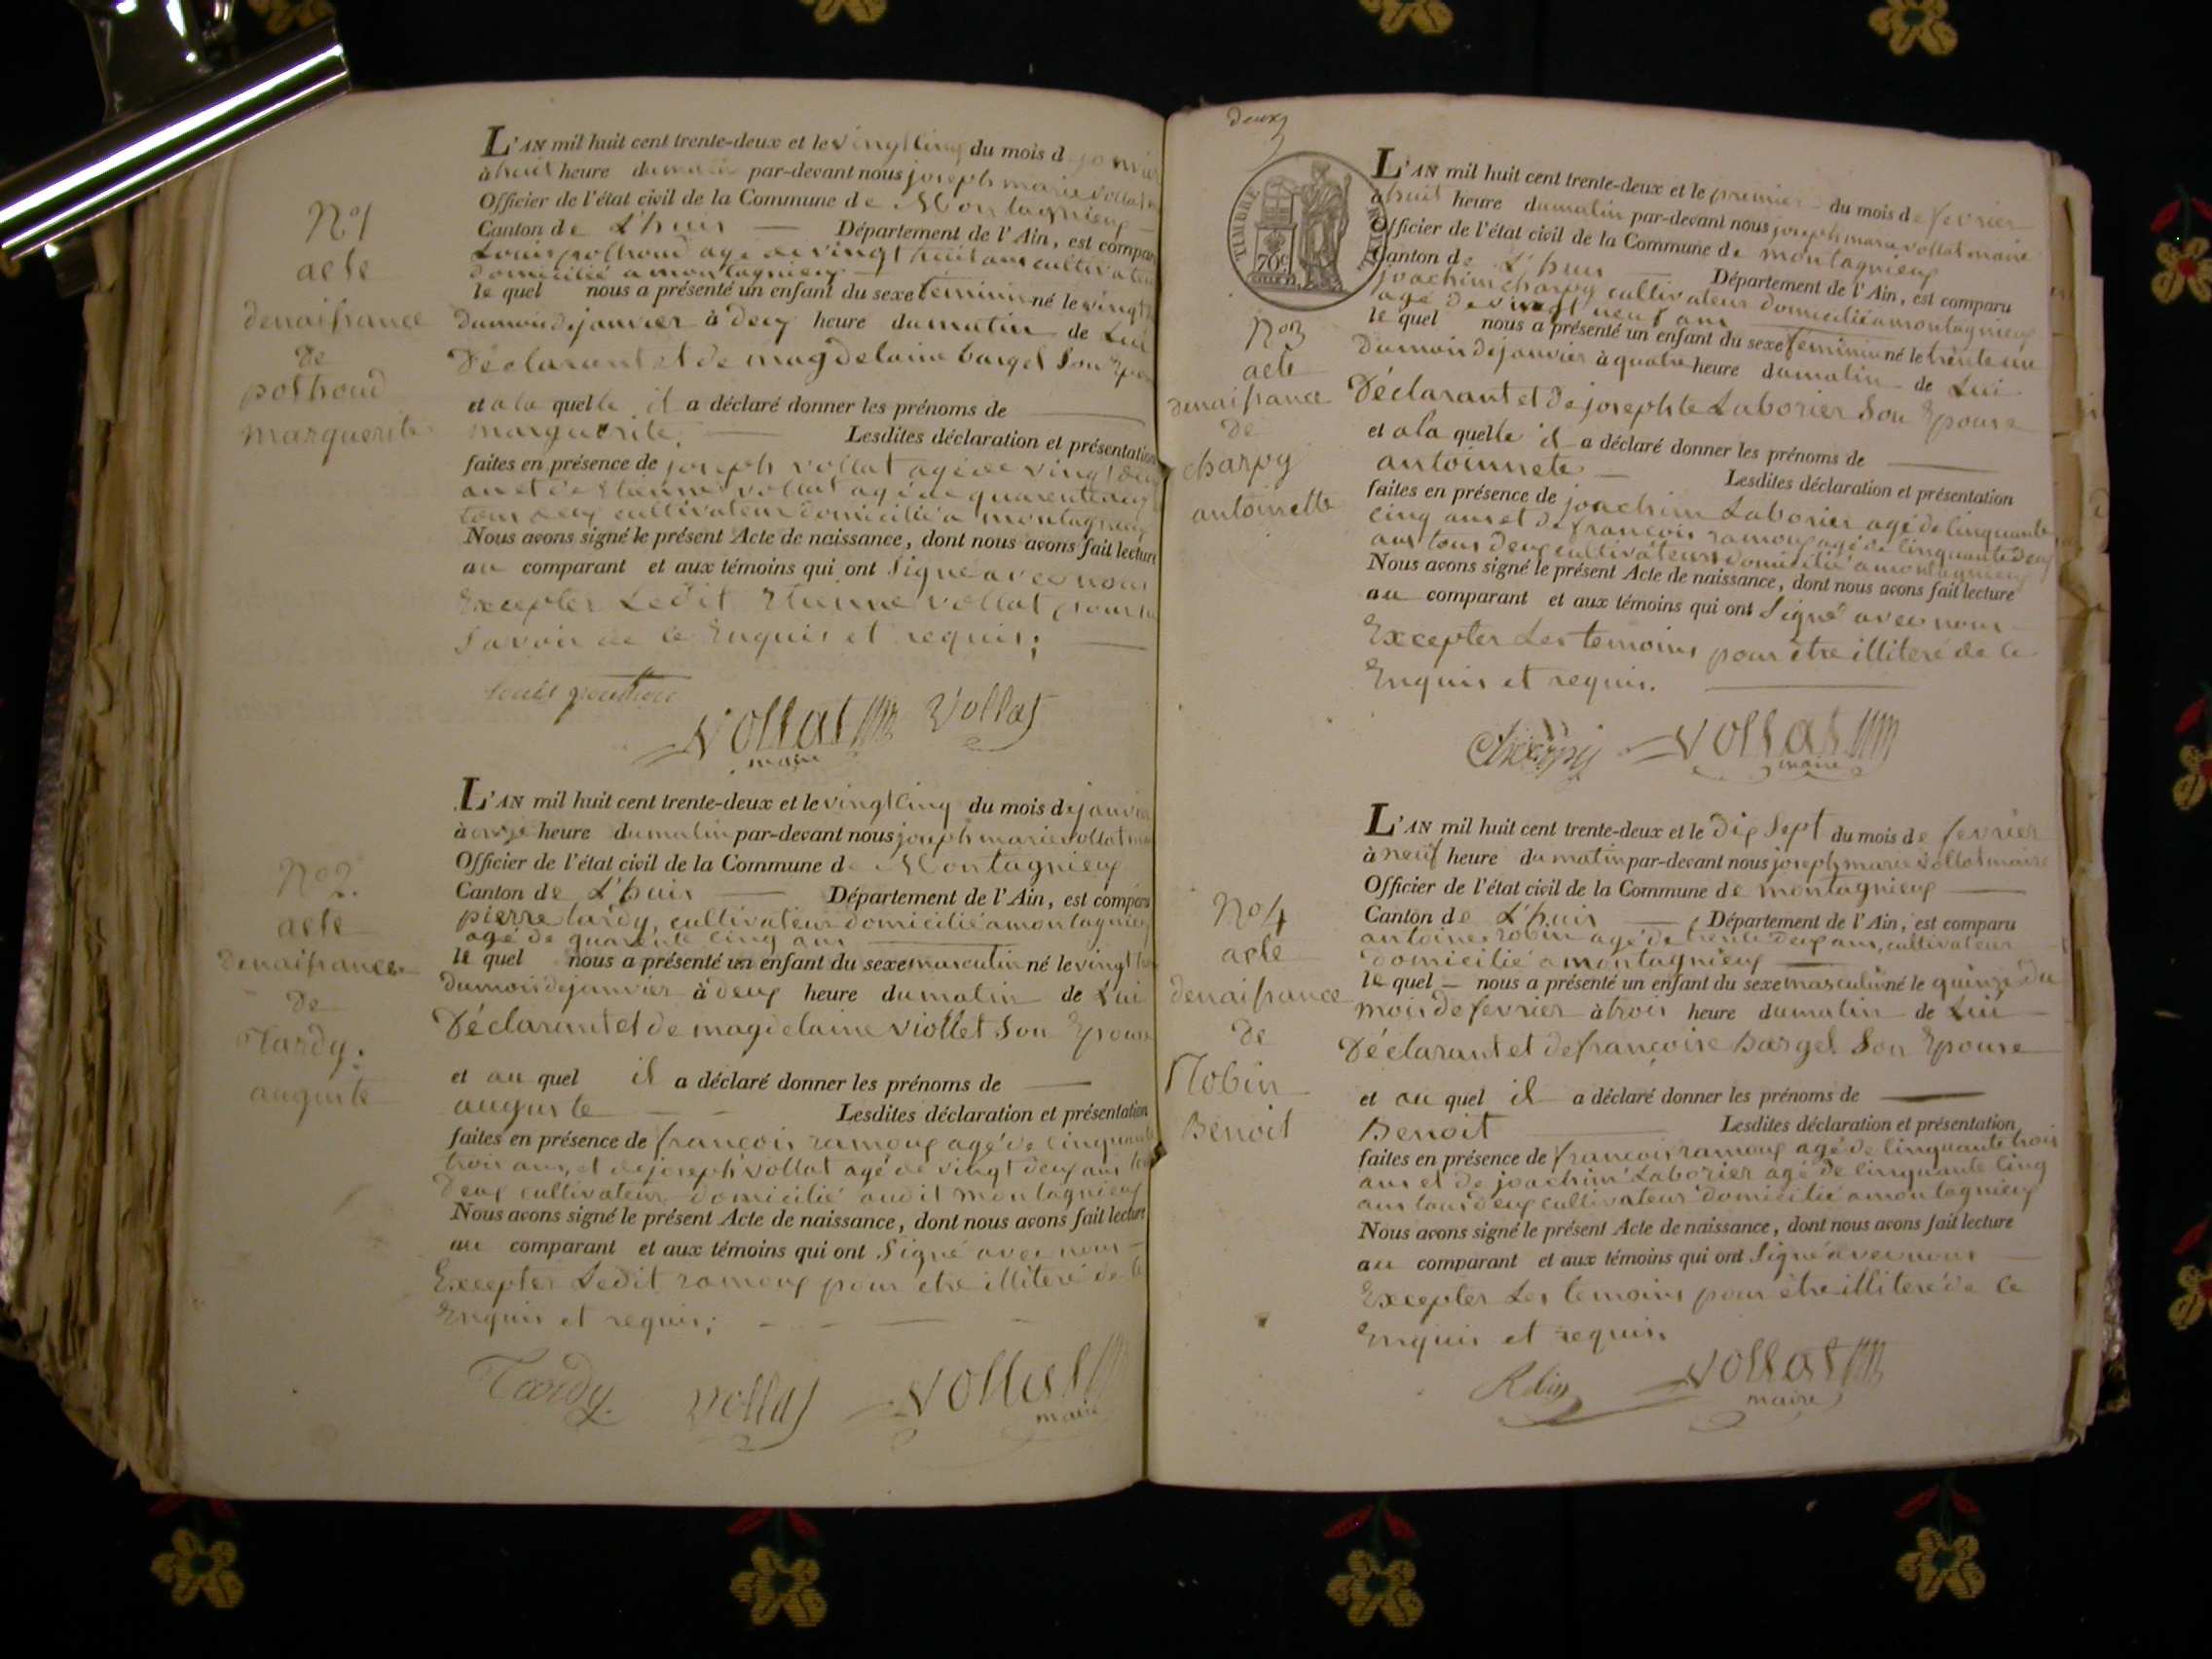 N°1
acte
denaissance
de
pothoud
marguerite
L'AN mil huit cent trente-deux et le vingt cinq du mois d janvier
à huit heure du matin par-devant nous joseph marie vollat
Officier de l'état civil de la Commune de Montagnieux
Canton de L'huis Département de l'Ain, est compar
Louis pothoud agé de vingt huit ans cultivateur
domicilié a montagnieux
le quel nous a présenté un enfant du sexe féminin né le vingt
du mois de janvier à deux heure du matin de Lui
Déclarant et de magdelaine bargel son Epou
et a la quelle il a déclaré donner les prénoms de
marguerite. Lesdites déclaration et présentation
faites en présence de joseph vollat agé de vingt deux
an et de Etienne vollat agé de quarente deux
tous deux cultivateur domicilié a montagnieux
Nous avons signé le présent Acte de naissance, dont nous avons fait lecture
au comparant et aux témoins qui ont Signé avec nous
Excepter Ledit Etienne vollat pour
Savoir de ce Enquis et requis;
Vollat Vollat
maire
N°2.
acte
denaissance
de
Tardy.
auguste
L'AN mil huit cent trente-deux et le vingt cinq du mois de janvier
à onze heure du matin par-devant nous joseph marie vollat
Officier de l'état civil de la Commune de Montagnieux
Canton de L'huis Département de l'Ain, est comparu
pierre tardy, cultivateur domicilié a montagnieux
agé de quarente cinq ans
le quel nous a présenté un enfant du sexe masculin né le vingt
du mois de janvier à deux heure du matin de Lui
Déclarant et de magdelaine viollet Son Epouse
et au quel il a déclaré donner les prénoms de
auguste Lesdites déclaration et présentation
faites en présence de françois ramoux agé de cinquante
trois ans, et de joseph vollat agé de vingt deux ans tous
deux cultivateur domicilié audit montagnieux
Nous avons signé le présent Acte de naissance, dont nous avons fait lecture
au comparant et aux témoins qui ont Signé avec nous
Excepter Ledit ramoux pour etre illiteré de ce
Enquis et requis;
Tardy. Vollat Vollat
maire
deux
TIMBRE ROYAL
70c
N°3
acte
denaissance
de
charpy
antoinette
L'AN mil huit cent trente-deux et le premier du mois de fevrier
à huit heure du matin par-devant nous joseph marie vollat maire
Officier de l'état civil de la Commune de montagnieux
Canton de L'huis Département de l'Ain, est comparu
joachim charpy cultivateur domicilié a montagnieux
agé de vingt neuf ans
le quel nous a présenté un enfant du sexe féminin né le trente un
du mois de janvier à quatre heure du matin de Lui
Déclarant et de josephte Laborier Son Epouse
et a la quelle il a déclaré donner les prénoms de
antoinnete Lesdites déclaration et présentation
faites en présence de joachim Laborier agé de cinquante
cinq ans et de françois ramoux agé de cinquante deux
ans tous deux cultivateurs domicilié a montagnieux
Nous avons signé le présent Acte de naissance, dont nous avons fait lecture
au comparant et aux témoins qui ont Signé avec nous
Excepter Les temoins pour être illiteré de ce
Enquis et requis.
Charpy Vollat
maire
N°4
acte
denaissance
de
Robin
Benoit
L'AN mil huit cent trente-deux et le dix Sept du mois de fevrier
à neuf heure du matin par-devant nous joseph marie vollat maire
Officier de l'état civil de la Commune de montagnieux
Canton de L'huis Département de l'Ain, est comparu
antoine robin agé de trente deux ans, cultivateur
domicilié a montagnieux
le quel nous a présenté un enfant du sexe masculin né le quinze du
mois de fevrier à trois heure du matin de Lui
Déclarant et de françoise Bargel Son Epouse
et au quel il a déclaré donner les prénoms de
Benoit Lesdites déclaration et présentation
faites en présence de francois ramoux agé de cinquante trois
ans et de joachim Laborier agé de cinquante cinq
ans tous deux cultivateur domicilié a montagnieux
Nous avons signé le présent Acte de naissance, dont nous avons fait lecture
au comparant et aux témoins qui ont Signé avec nous
Excepter Les temoins pour être illiteré de ce
Enquis et requis
Robin Vollat
maire